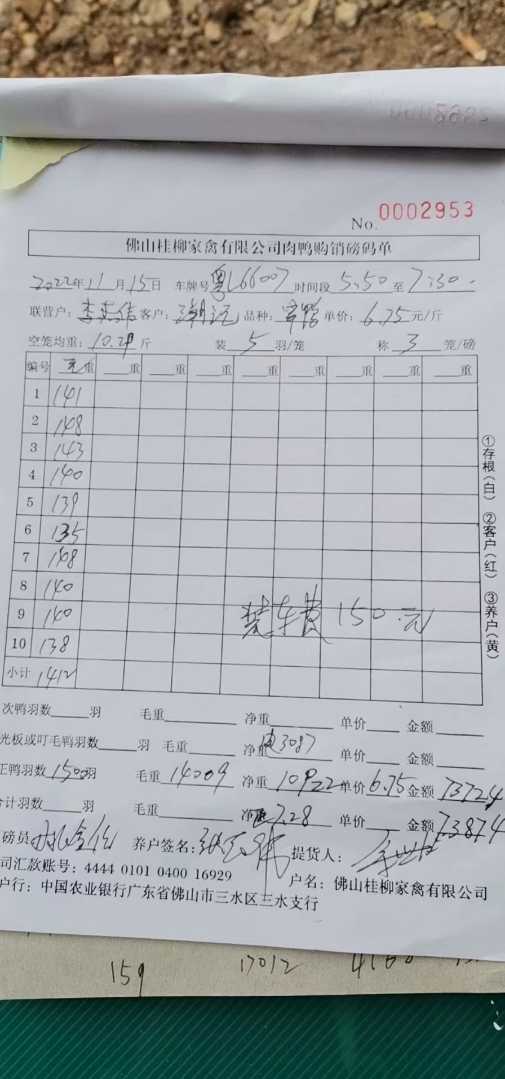 No. 0002953
佛山桂柳家禽有限公司肉鸭购销磅码单
2022年11月15日 车牌号粤L66007 时间段5.50至7:30.
联营户: 客户: 品种: 单价: 6.75元/斤
空笼均重: 10.29斤 装5羽/笼 称3笼/磅
编号 毛重 重 重 重 重 重 重 重
1 141
2 148
3 143
4 140
5 139
6 135
7 148
8 140
9 140 装车费150元
10 138
小计 1412
①存根(白) ②客户(红) ③养户(黄)
次鸭羽数 羽 毛重 净重 单价 金额
光板或叮毛鸭羽数 羽 毛重 净重 3087 单价 金额
正鸭羽数1500羽 毛重14009 净重10922 单价6.75 金额73724
合计羽数 羽 毛重 净重 7.28 单价 金额73874
磅员 养户签名: 提货人:
司汇款账号: 4444 0101 0400 16929 户名: 佛山桂柳家禽有限公司
户行: 中国农业银行广东省佛山市三水区三水支行
159 17012